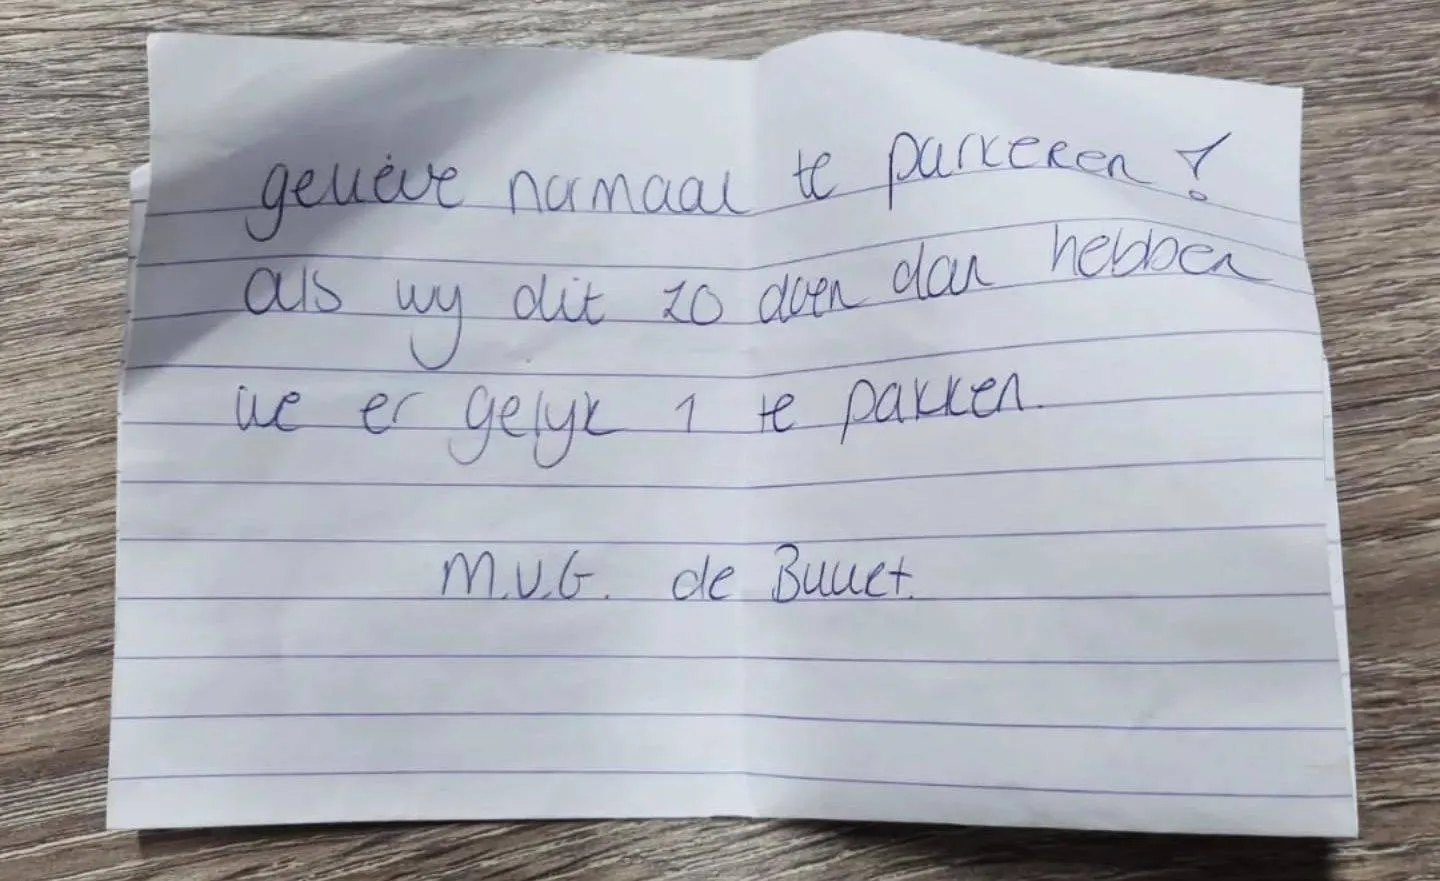 gelieve normaal te parkeren!
als wij dit zo doen dan hebben
we er gelijk 1 te pakken.
M.V.G. de Buurt.